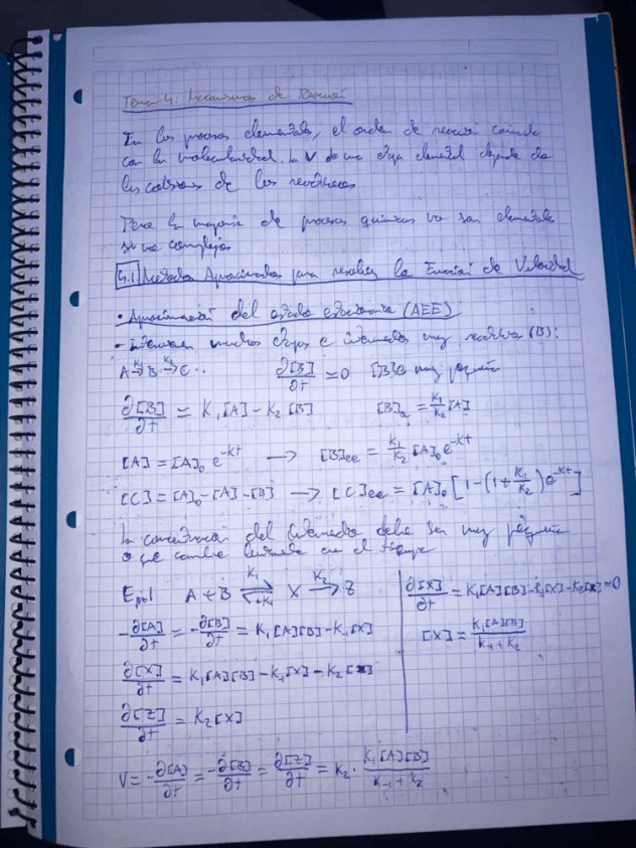 Tema 4: Mecanismos de Reacción
En los procesos elementales, el orden de reacción coincide
con la molecularidad. La V de una etapa elemental depende de
las colisiones de los reactivos
Pero la mayoría de procesos químicos no son elementales
si no complejos
4.1 Métodos Aproximados para resolver la Ecuación de Velocidad
• Aproximación del estado estacionario (AEE)
- Intervienen muchas etapas e intermedios muy reactivos (B):
A →K₁ B →K₂ C ∂[B]/∂t ≃ 0 [B] muy pequeña
∂[B]/∂t ≃ K₁[A] - K₂[B] = K₁/K₂ [A]
[A] = [A]₀ e^-Kt → [B]ee = K₁/K₂ [A]₀ e^-Kt
[C] = [A]₀ - [A] - [B] → [C]ee = [A]₀ [1 - (1 + K₁/K₂) e^-Kt]
La concentración del intermedio debe ser muy pequeña
o que cambie lentamente con el tiempo
A + B ⇌ X →K₂ Z
-∂[A]/∂t = -∂[B]/∂t = K₁[A][B] - K₋₁[X]
∂[X]/∂t = K₁[A][B] - K₋₁[X] - K₂[X]
∂[Z]/∂t = K₂[X]
∂[X]/∂t = K₁[A][B] - K₋₁[X] - K₂[X] = 0
[X] = K₁[A][B]/(K₋₁ + K₂)
V = -∂[A]/∂t = -∂[B]/∂t = ∂[Z]/∂t = K₂ · K₁[A][B]/(K₋₁ + K₂)